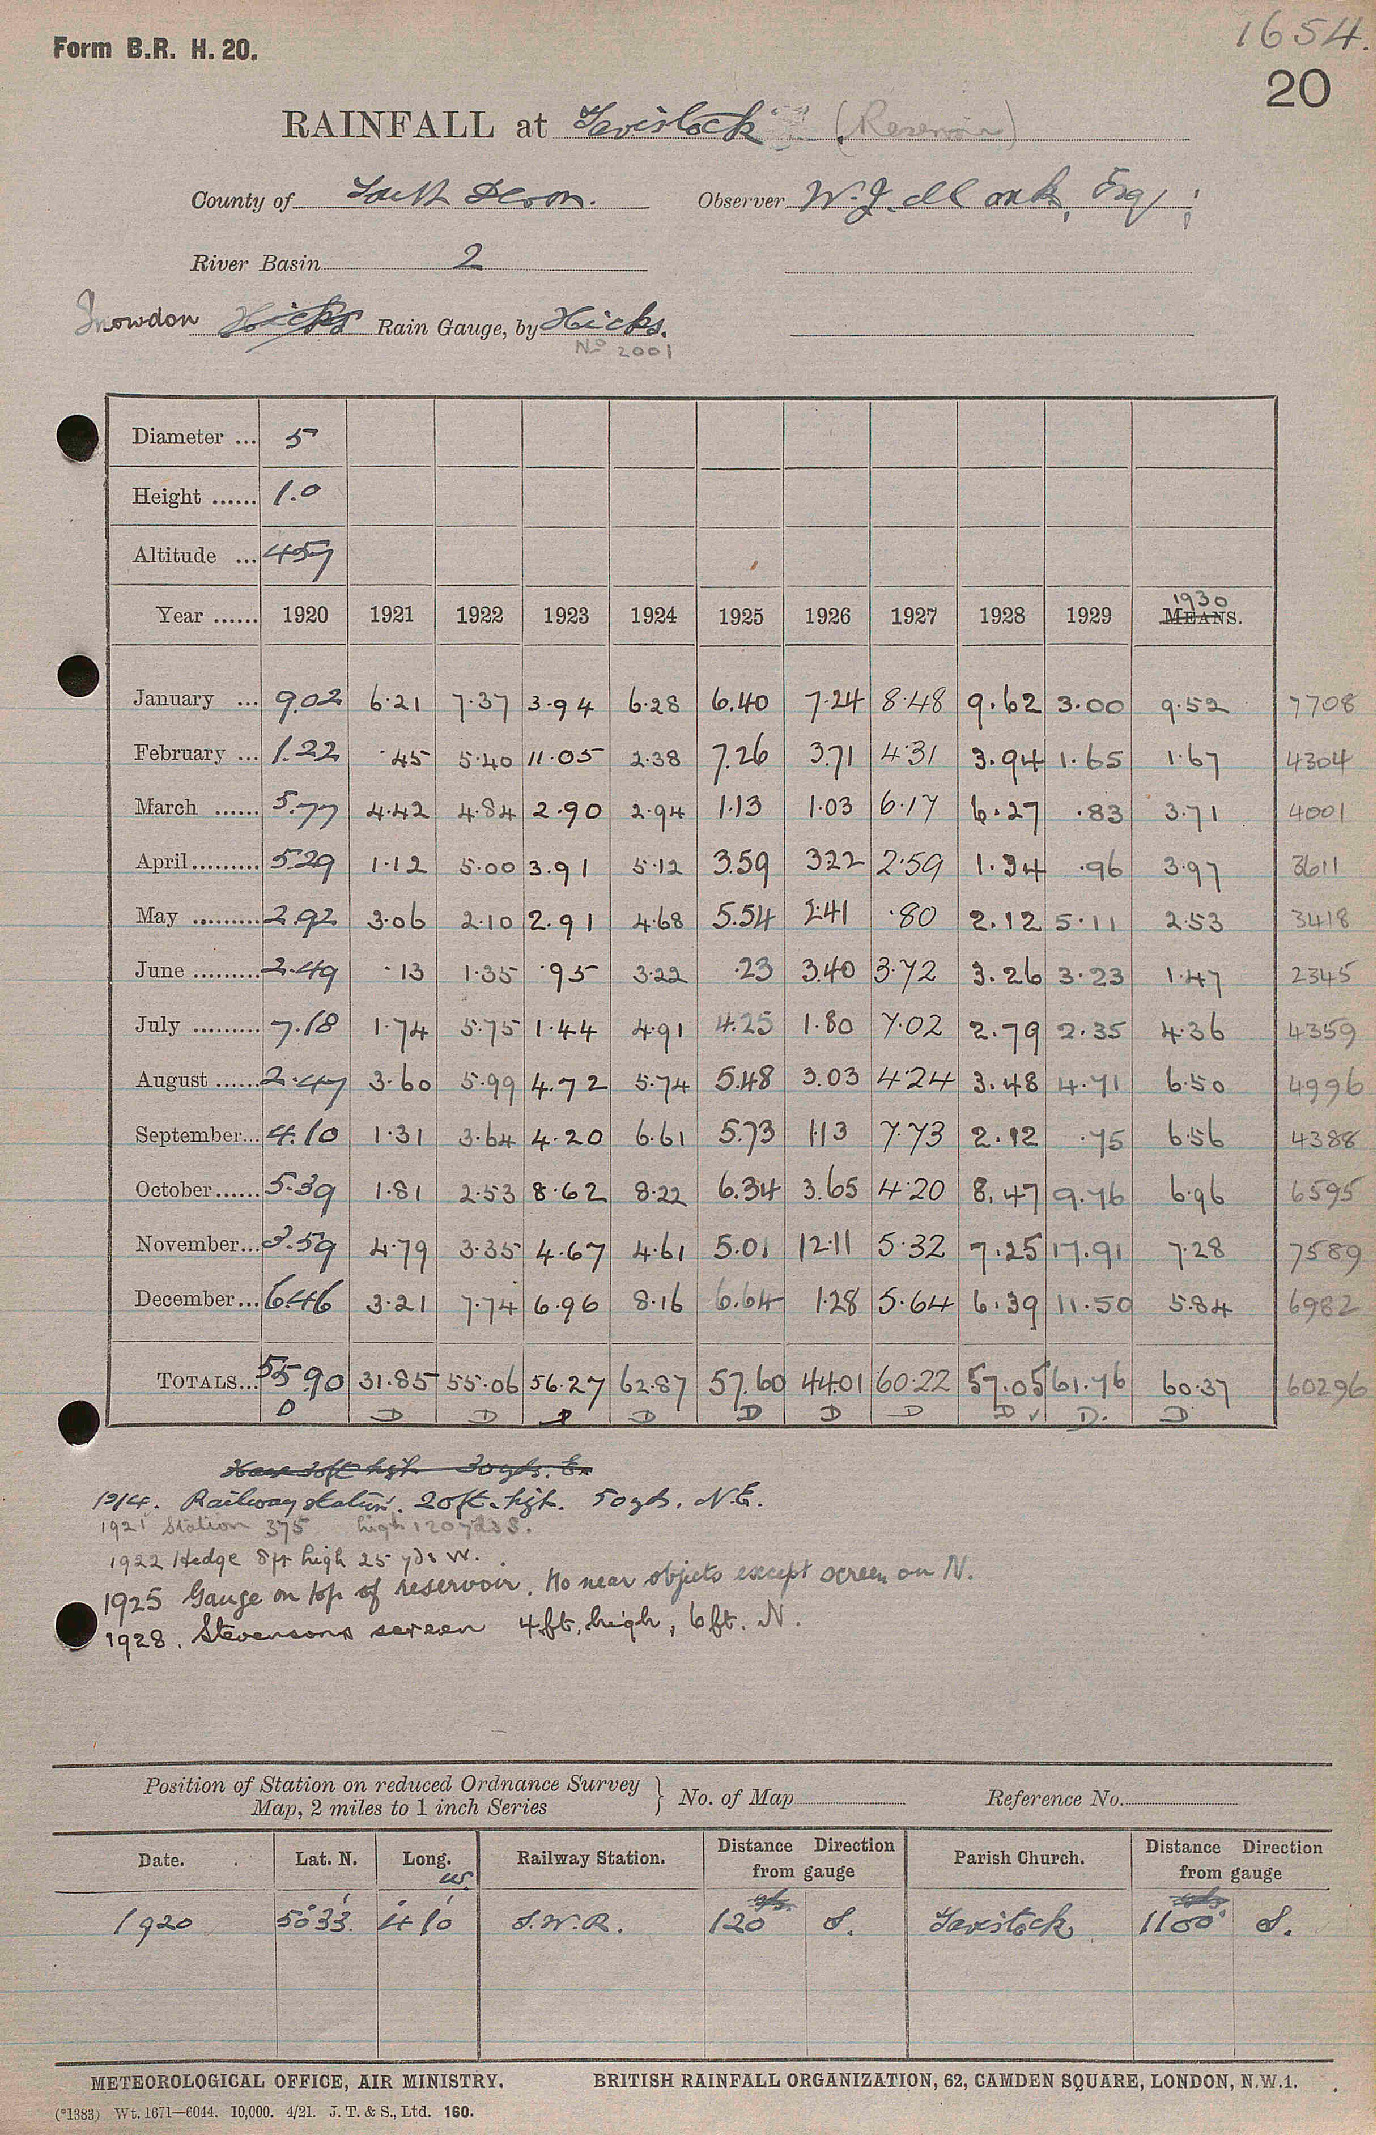 1654.
Form B.R. H. 20.
20
RAINFALL at Tavistock (Reservoir)
County of South Devon. Observer W. J. Monk, Esq;
River Basin 2
Snowdon Hicks Rain Gauge, by Hicks.
No 2001
Diameter ... 5
Height ...... 1.0
Altitude ... 457
1930
Year ...... 1920 1921 1922 1923 1924 1925 1926 1927 1928 1929 MEANS.
January ... 9.02 6.21 7.37 3.94 6.28 6.40 7.24 8.48 9.62 3.00 9.52 7708
February ... 1.22 .45 5.40 11.05 2.38 7.26 3.71 4.31 3.94 1.65 1.67 4304
March ...... 5.77 4.42 4.84 2.90 2.94 1.13 1.03 6.17 6.27 .83 3.71 4001
April......... 5.29 1.12 5.00 3.91 5.12 3.59 3.22 2.59 1.34 .96 3.97 3611
May ......... 2.92 3.06 2.10 2.91 4.68 5.54 2.41 .80 2.12 5.11 2.53 3418
June ......... 2.49 .13 1.35 .95 3.22 .23 3.40 3.72 3.26 3.23 1.47 2345
July ......... 7.18 1.74 5.75 1.44 4.91 4.25 1.80 7.02 2.79 2.35 4.36 4359
August ...... 2.47 3.60 5.99 4.72 5.74 5.48 3.03 4.24 3.48 4.71 6.50 4996
September... 4.10 1.31 3.64 4.20 6.61 5.73 1.13 7.73 2.12 .75 6.56 4388
October...... 5.39 1.81 2.53 8.62 8.22 6.34 3.65 4.20 8.47 9.76 6.96 6595
November... 3.59 4.79 3.35 4.67 4.61 5.01 12.11 5.32 7.25 17.91 7.28 7589
December... 6.46 3.21 7.74 6.96 8.16 6.64 1.28 5.64 6.39 11.50 5.84 6982
TOTALS... 55.90 31.85 55.06 56.27 62.87 57.60 44.01 60.22 57.05 61.76 60.37 60296
D D D D D D D D D ✓ D. D
1914. Railway station. 20ft. high. 50 yds. N.E.
1921 Station 375 high 120 yds S.
1922 Hedge 8ft high 25 yds W.
1925 Gauge on top of reservoir. No near objects except screen on N.
1928. Stevensons screen 4ft. high, 6ft. N.
Position of Station on reduced Ordnance Survey
Map, 2 miles to 1 inch Series } No. of Map Reference No.
Date. Lat. N. Long. W. Railway Station. Distance Direction from gauge Parish Church. Distance Direction from gauge
1920 50° 33' 4° 10' S.W.R. 120 S. Tavistock 1100 S.
METEOROLOGICAL OFFICE, AIR MINISTRY. BRITISH RAINFALL ORGANIZATION, 62, CAMDEN SQUARE, LONDON, N.W.1.
(*1383) Wt. 1671—6044. 10,000. 4/21. J. T. & S., Ltd. 160.